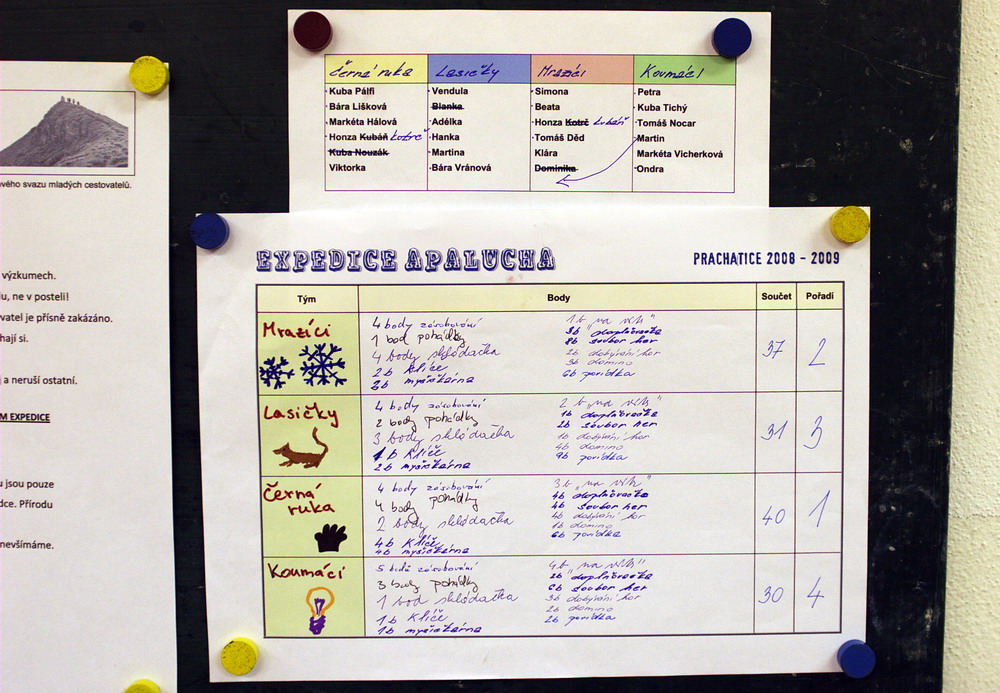 vého svazu mladých cestovatelů.
výzkumech.
u, ne v posteli!
vatel je přísně zakázáno.
hají si.
a neruší ostatní.
M EXPEDICE
u jsou pouze
dce. Přírodu
nevšímáme.
Černá ruka Lasičky Mrazíci Koumáci
Kuba Pálfi Vendula Simona Petra
Bára Lišková Blanka Beata Kuba Tichý
Markéta Hálová Adélka Honza Kotrč Kubáň Tomáš Nocar
Honza Kubáň Kotrč Hanka Tomáš Děd Martin
Kuba Nouzák Martina Klára Markéta Vicherková
Viktorka Bára Vránová Dominika Ondra
EXPEDICE APALUCHA
PRACHATICE 2008 - 2009
Tým Body Součet Pořadí
Mrazíci
4 body zásobování
1 bod pohádky
4 body skládačka
2b Klíče
2b myšičkárna
1b "na vrh"
3b "doplňovačka
8b soubor her
2b dobývání hor
3b domino
6b povídka
37 2
Lasičky
4 body zásobování
2 body pohádky
3 body skládačka
1b Klíče
2b myšičkárna
2b "na vrh"
1b doplňovačka
2b soubor her
1b dobývání hor
4b domino
9b povídka
31 3
Černá
ruka
4 body zásobování
4 body pohádky
2 body skládačka
4b Klíče
4b myšičkárna
3b "na vrh"
4b doplňovačka
4b soubor her
4b dobývání hor
1b domino
6b povídka
40 1
Koumáci
5 bodů zásobování
3 body pohádky
1 bod skládačka
1b Klíče
1b myšičkárna
4b "na vrh"
2b "doplňovačka
6b soubor her
3b dobývání hor
2b domino
2b povídka
30 4